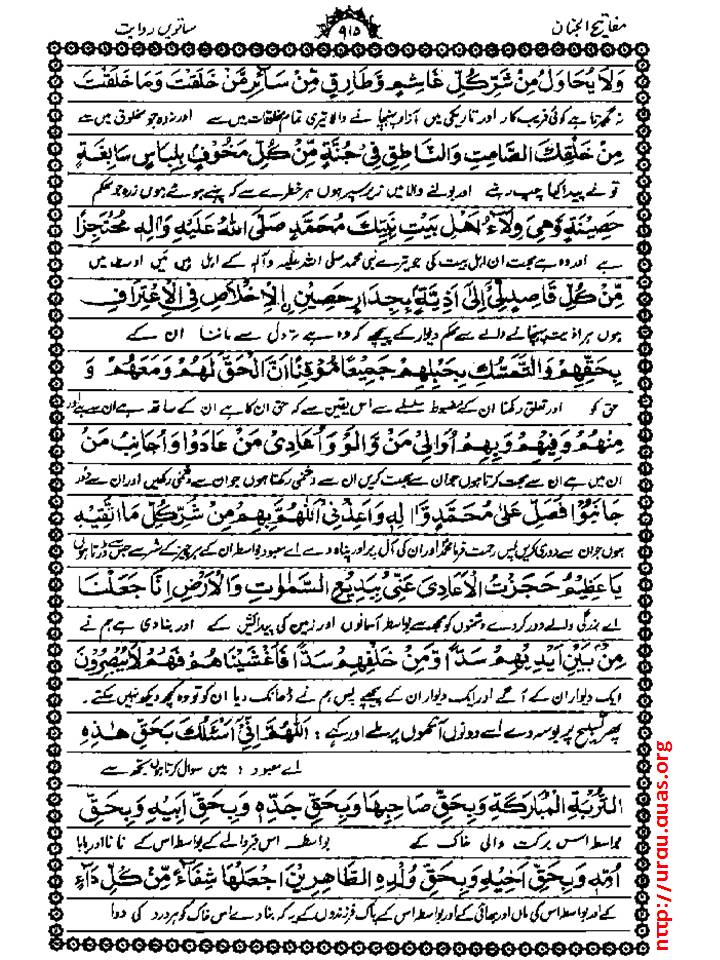 مفاتیح الجنان
۹۱۵
ساتویں روایت
وَلَا يُحَاوَلُ مِنْ شَرِّ كُلِّ غَاشِمٍ وَّطَارِقٍ مِّنْ سَآئِرِ مَّنْ خَلَقْتَ وَمَا خَلَقْتَ
نہ گھرتا ہے کوئی فریب کار اور تاریکی میں آزار پہنچانے والا تیری تمام مخلوقات میں سے اور نہ وہ جو مخلوق میں سے
مِنْ خَلْقِكَ الصَّامِتِ وَالنَّاطِقِ فِيْ جُنَّةٍ مِّنْ كُلِّ مَخُوْفٍ بِلِبَاسٍ سَابِغَةٍ
تو نے پیدا کیا چپ رہنے اور بولنے والا میں زیر سپر ہوں ہر خطرے سے کہ پہنے ہوئے ہوں زرہ جو محکم
حَصِيْنَةٍ وَّهِيَ وِلَآءُ اَهْلِ بَيْتِ نَبِيِّكَ مُحَمَّدٍ صَلَّى اللّٰهُ عَلَيْهِ وَاٰلِهٖ مُحْتَجِزًا
ہے اور وہ ہے محبت ان اہل بیت کی جو تیرے نبی محمد صلی اللہ علیہ وآلہ کے اہل ہیں میں اوٹ میں
مِّنْ كُلِّ قَاصِدٍ لِّيْ اِلٰى اَذِيَّةٍ بِجِدَارٍ حَصِيْنٍ اِلْاِخْلَاصِ فِي الْاِعْتِرَافِ
ہوں ہر اذیت پہنچانے والے سے محکم دیوار کے پیچھے کہ وہ ہے تہ دل سے ماننا ان کے
بِحَقِّهِمْ وَالتَّمَسُّكِ بِحَبْلِهِمْ جَمِيْعًا مُوْقِنًا اَنَّ الْحَقَّ لَهُمْ وَمَعَهُمْ وَ
حق کو اور تعلق رکھنا ان کے مضبوط سلسلے سے اس یقین سے کہ حق ان کا ہے ان کے ساتھ ہے ان سے ہے اور
مِنْهُمْ وَفِيْهِمْ وَبِهِمْ اُوَالِيْ مَنْ وَّالَوْا وَاُعَادِيْ مَنْ عَادَوْا وَاُجَانِبُ مَنْ
ان میں ہے ان سے محبت کرتا ہوں جو ان سے محبت کریں ان سے دشمنی رکھتا ہوں جو ان سے دشمنی رکھیں اور ان سے دور
جَانَبُوْا فَصَلِّ عَلٰى مُحَمَّدٍ وَّاٰلِهٖ وَاَعِذْنِيْ اَللّٰهُمَّ بِهِمْ مِنْ شَرِّ كُلِّ مَا اَتَّقِيْهِ
ہوں جو ان سے دوری کریں پس رحمت فرما محمد اور ان کی آل پر اور پناہ دے اے معبود بواسطہ ان کے ہر چیز کے شر سے جس سے ڈرتا ہوں
يَا عَظِيْمُ حَجَزْتُ الْاَعَادِيَ عَنِّيْ بِبَدِيْعِ السَّمٰوٰتِ وَالْاَرْضِ اِنَّا جَعَلْنَا
اے بزرگی والے دور کر دے دشمنوں کو مجھ سے بواسطہ آسمانوں اور زمین کی پیدائش کے اور بنا دی ہے ہم نے
مِنْ بَيْنِ اَيْدِيْهِمْ سَدًّا وَّمِنْ خَلْفِهِمْ سَدًّا فَاَغْشَيْنَاهُمْ فَهُمْ لَا يُبْصِرُوْنَ
ایک دیوار ان کے آگے اور ایک دیوار ان کے پیچھے پس ہم نے ڈھانک دیا ان کو تو وہ کچھ دیکھ نہیں سکتے۔
پھر تسبیح پر بوسہ دے اسے دونوں آنکھوں پر ملے اور کہے: اَللّٰهُمَّ اِنِّيْ اَسْئَلُكَ بِحَقِّ هٰذِهِ
اے معبود: میں سوال کرتا ہوں تجھ سے
التُّرْبَةِ الْمُبَارَكَةِ وَبِحَقِّ صَاحِبِهَا وَبِحَقِّ جَدِّهٖ وَبِحَقِّ اَبِيْهِ وَبِحَقِّ
بواسطہ اس برکت والی خاک کے بواسطہ اس قبر والے کے بواسطہ اس کے نانا اور بابا
اُمِّهٖ وَبِحَقِّ اَخِيْهِ وَبِحَقِّ وُلْدِهِ الطَّاهِرِيْنَ اجْعَلْهَا شِفَآءً مِّنْ كُلِّ دَآءٍ
کے اور بواسطہ اس کی ماں اور بھائی کے اور بواسطہ اس کے پاک فرزندوں کے یہ کہ بنا دے اس خاک کو ہر درد کی دوا
http://urdu.duas.org